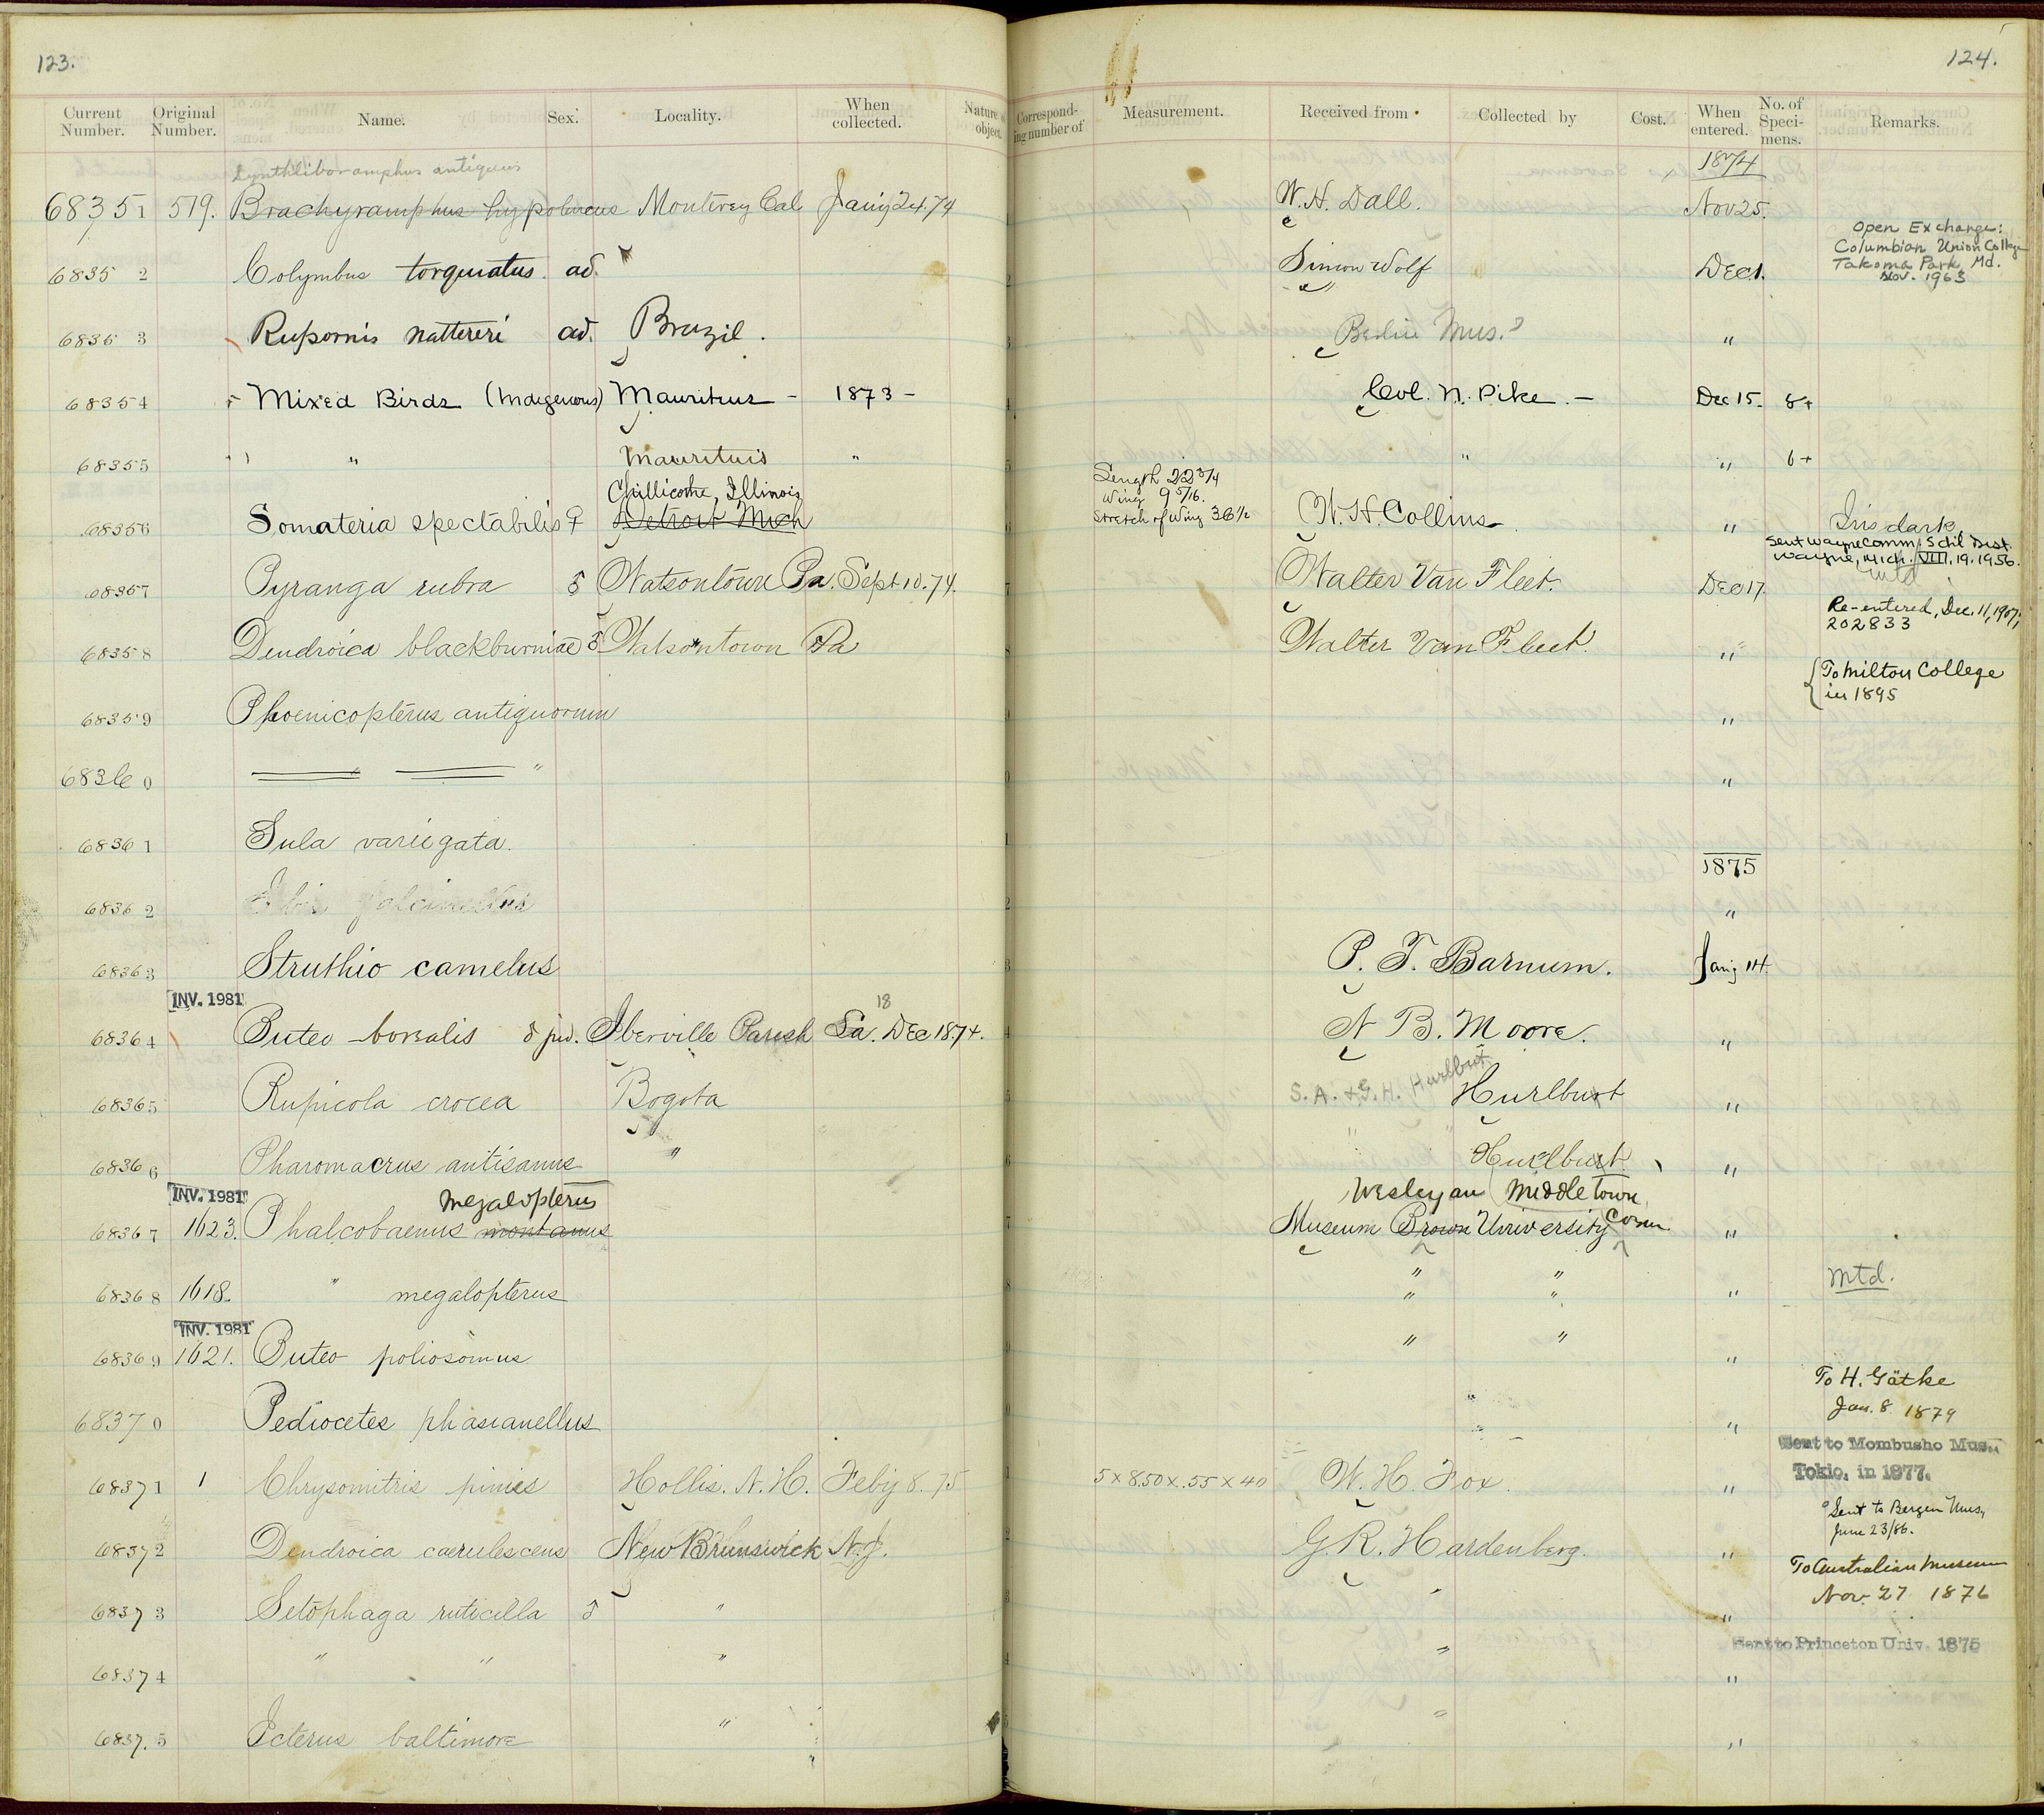 123.
Current Number. Original Number. Name. Sex. Locality. When collected. Nature of object.
Synthliboramphus antiquus
68351 519. Brachyramphus hypoleucus Monterey Cal Jany 24. 74
68352 Colymbus torquatus ad.
68353 Rupornis nattereri ad. Brazil.
68354 Mixed Birds (Indigenous) Mauritius - 1873 -
68355 " " Mauritius "
Chillicothe, Illinois
68356 Somateria spectabilis ♀ Detroit Mich
68357 Pyranga rubra ♂ Watsontown Pa. Sept 10. 74.
68358 Dendroica blackburniae ♂ Watsontown Pa
68359 Phoenicopterus antiquorum
68360 " "
68361 Sula variegata.
68362 Ibis falcinellus
68363 Struthio camelus
INV. 1981
18
68364 Buteo borealis ♂ juv. Iberville Parish La. Dec 1874.
68365 Rupicola crocea Bogota
68366 Pharomacrus antisanus "
INV. 1981 megalopterus
68367 1623. Phalcobaenus montanus
68368 1618. " megalopterus
INV. 1981
68369 1621. Buteo poliosomus
68370 Pediocetes phasianellus
68371 1 Chrysomitris pinus Hollis. N. H. Feby 8. 75
68372 Dendroica caerulescens New Brunswick N. J.
68373 Setophaga ruticilla ♂ "
68374 " " "
68375 Icterus baltimore "
124.
Corresponding number of Measurement. Received from Collected by Cost. When entered. No. of Specimens. Remarks.
1874
W. H. Dall. Nov 25.
Open Exchange:
Columbian Union College
Takoma Park, Md.
Nov. 1963
Simon Wolf Dec 1.
Berlin Mus.? "
Col. N. Pike. - Dec 15. 8+
" " 6+
Length 22 3/4
Wing 9 5/16.
Stretch of Wing 36 1/2
W. H. Collins "
Iris dark
Sent Wayne Comm. Schl Dist.
Wayne, Mich. VIII. 19. 1956.
Mtd
Walter Van Fleet. Dec 17.
Re-entered, Dec. 11, 1907;
202833
Walter Van Fleet. "
{To Milton College
in 1895
"
"
1875
"
P. T. Barnum. Jany 14.
N B. Moore. "
S. A. & G. H. Hurlbut
Hurlburt "
Hurlburt "
Wesleyan Middletown
Museum Brown University Conn "
" " " Mtd.
" "
" " "
To H. Gätke
Jan. 8 1879
" "
Sent to Mombusho Mus.,
Tokio, in 1877.
5 x 8.50 x .55 x 40 W. H. Fox. "
Sent to Bergen Mus,
June 23/86.
G. R. Hardenberg. "
To Australian Museum
Nov. 27 1876
" "
Sent to Princeton Univ. 1875
" "
" "